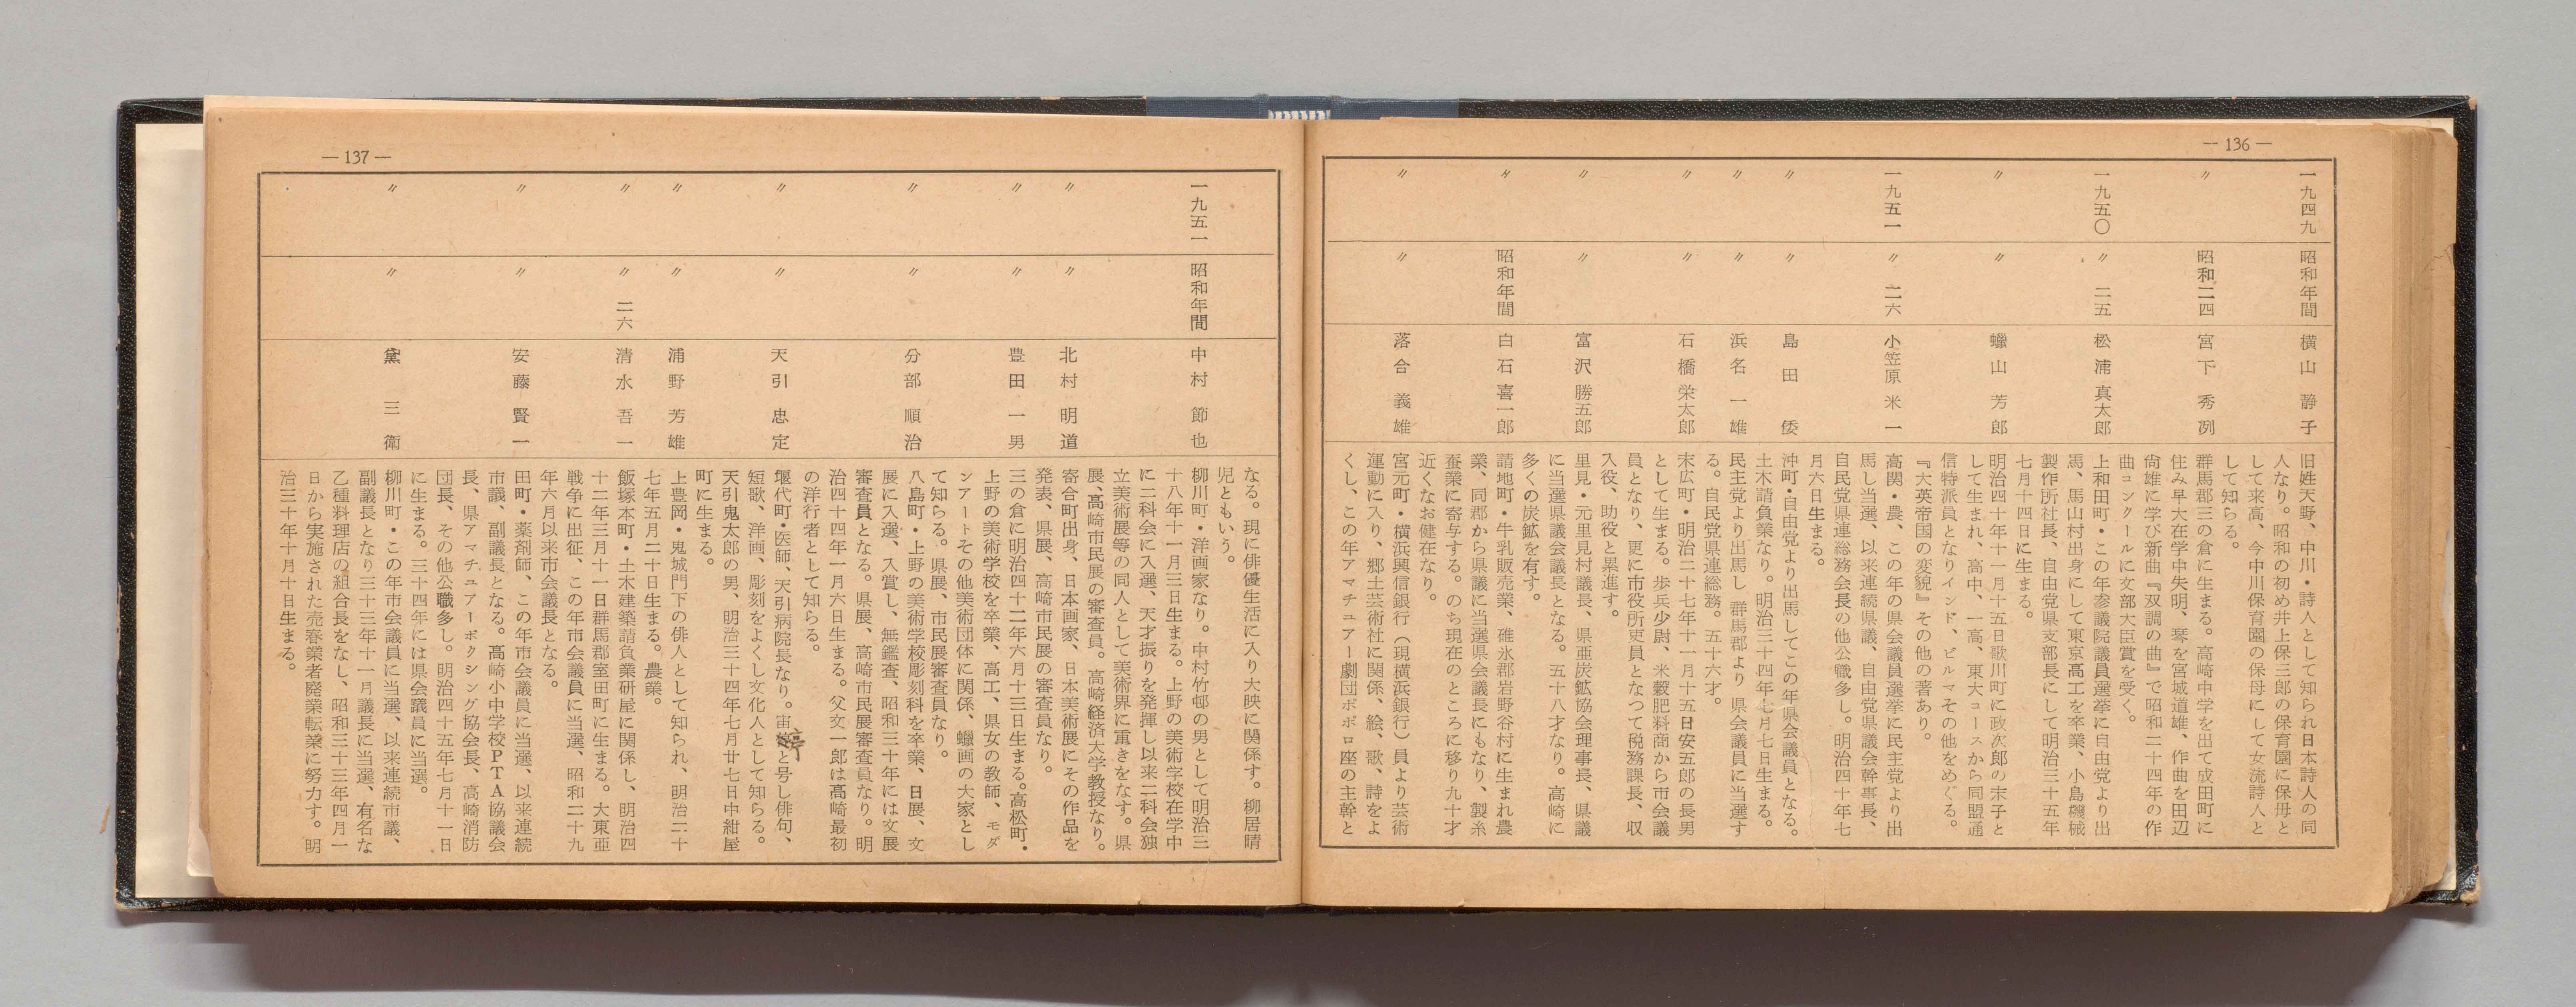 — 136 —
一九四九
昭和年間
横山静子
旧姓天野、中川・詩人として知られ日本詩人の同
人なり。昭和の初め井上保三郎の保育園に保母と
して来高、今中川保育園の保母にして女流詩人と
して知らる。
〃
昭和二四
宮下秀冽
群馬郡三の倉に生まる。高崎中学を出て成田町に
住み早大在学中失明、琴を宮城道雄、作曲を田辺
尚雄に学び新曲『双調の曲』で昭和二十四年の作
曲コンクールに文部大臣賞を受く。
一九五〇
〃二五
松浦真太郎
上和田町・この年参議院議員選挙に自由党より出
馬、馬山村出身にして東京高工を卒業、小島磯械
製作所社長、自由党県支部長にして明治三十五年
七月十四日に生まる。
〃
〃
蠟山芳郎
明治四十年十一月十五日歌川町に政次郎の末子と
して生まれ、高中、一高、東大コースから同盟通
信特派員となりインド、ビルマその他をめぐる。
『大英帝国の変貌』その他の著あり。
一九五一
〃二六
小笠原米一
高関・農、この年の県会議員選挙に民主党より出
馬し当選、以来連続県議、自由党県議会幹事長、
自民党県連総務会長の他公職多し。明治四十年七
月六日生まる。
〃
〃
島田倭
沖町・自由党より出馬してこの年県会議員となる。
土木請負業なり。明治三十四年七月七日生まる。
〃
〃
浜名一雄
民主党より出馬し群馬郡より県会議員に当選す
る。自民党県連総務。五十六才。
〃
〃
石橋栄太郎
末広町・明治二十七年十一月十五日安五郎の長男
として生まる。歩兵少尉、米穀肥料商から市会議
員となり、更に市役所吏員となつて税務課長、収
入役、助役と累進す。
〃
〃
富沢勝五郎
里見・元里見村議長、県亜炭鉱協会理事長、県議
に当選県議会議長となる。五十八才なり。高崎に
多くの炭鉱を有す。
〃
昭和年間
白石喜一郎
請地町・牛乳販売業、碓氷郡岩野谷村に生まれ農
業、同郡から県議に当選県会議長にもなり、製糸
蚕業に寄与する。のち現在のところに移り九十才
近くなお健在なり。
〃
〃
落合義雄
宮元町・横浜興信銀行（現横浜銀行）員より芸術
運動に入り、郷土芸術社に関係、絵、歌、詩をよ
くし、この年アマチュアー劇団ポポロ座の主幹と
— 137 —
なる。現に俳優生活に入り大映に関係す。柳居晴
児ともいう。
一九五一
昭和年間
中村節也
柳川町・洋画家なり。中村竹邨の男として明治三
十八年十一月三日生まる。上野の美術学校在学中
に二科会に入選、天才振りを発揮し以来二科会独
立美術展等の同人として美術界に重きをなす。県
展、高崎市民展の審査員。高崎経済大学教授なり。
〃
〃
北村明道
寄合町出身、日本画家、日本美術展にその作品を
発表、県展、高崎市民展の審査員なり。
〃
〃
豊田一男
三の倉に明治四十二年六月十三日生まる。高松町・
上野の美術学校を卒業、高工、県女の教師、モダ
ンアートその他美術団体に関係、蠟画の大家とし
て知らる。県展、市民展審査員なり。
〃
〃
分部順治
八島町・上野の美術学校彫刻科を卒業、日展、文
展に入選、入賞し、無鑑査、昭和三十年には文展
審査員となる。県展、高崎市民展審査員なり。明
治四十四年一月六日生まる。父文一郎は高崎最初
の洋行者として知らる。
〃
〃
天引忠定
堰代町・医師、天引病院長なり。宙と号し俳句、
短歌、洋画、彫刻をよくし文化人として知らる。
天引鬼太郎の男、明治三十四年七月廿七日中紺屋
町に生まる。
〃
〃
浦野芳雄
上豊岡・鬼城門下の俳人として知られ、明治二十
七年五月二十日生まる。農業。
〃
〃二六
清水吾一
飯塚本町・土木建築請負業研屋に関係し、明治四
十二年三月十一日群馬郡室田町に生まる。大東亜
戦争に出征、この年市会議員に当選、昭和二十九
年六月以来市会議長となる。
〃
〃
安藤賢一
田町・薬剤師、この年市会議員に当選、以来連続
市議、副議長となる。高崎小中学校ＰＴＡ協議会
長、県アマチュアーボクシング協会長、高崎消防
団長、その他公職多し。明治四十五年七月十一日
に生まる。三十四年には県会議員に当選。
〃
〃
黛三衛
柳川町・この年市会議員に当選、以来連続市議、
副議長となり三十三年十一月議長に当選、有名な
乙種料理店の組合長をなし、昭和三十三年四月一
日から実施された売春業者廃業転業に努力す。明
治三十年十月十日生まる。